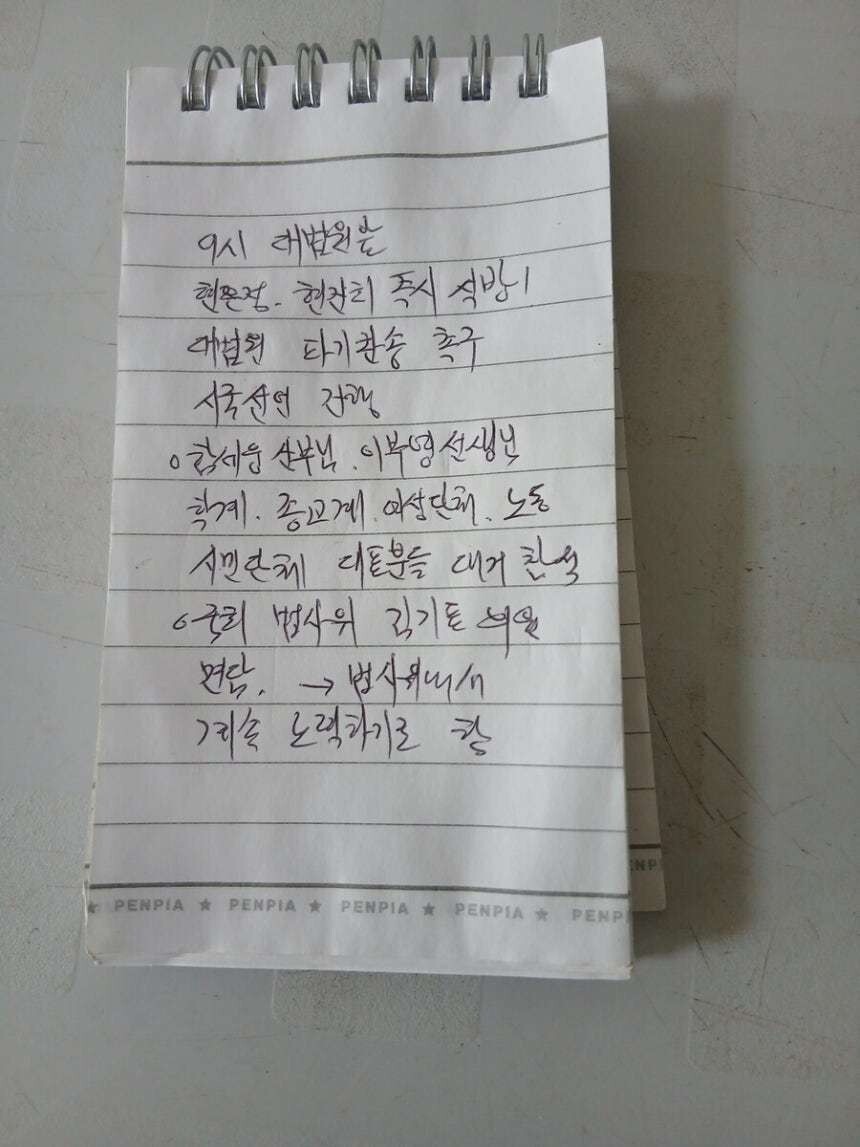 9시 대법원 앞
현은정. 현찬희 즉시 석방!
대법원 파기환송 촉구
시국선언 진행
○ 함세웅 신부님. 이부영 선생님
학계. 종교계. 여성단체. 노동
시민단체 대표분들 대거 참석
○ 국회 법사위 김기표 의원
면담. → 법사위내에서
계속 노력하기로 함
★ PENPIA ★ PENPIA ★ PENPIA ★ PENPIA ★ PENP